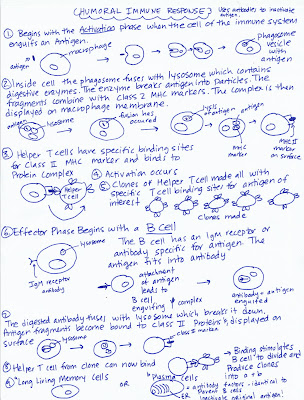 HUMORAL IMMUNE RESPONSE
Uses antibodies to inactivate antigen.
① Begins with the Activation phase when the cell of the immune system
engulfs an Antigen.
macrophage
antigen
phagosome
vesicle
with
antigen
② Inside cell the phagosome fuses with lysosome which contains
digestive enzymes. The enzyme breaks antigen into particles. The
fragments combine with class 2 MHC markers. The complex is then
displayed on macrophage membrane.
antigen
lysosome
fusion has
occured
lysis
antibody + antigen
MHC
marker
MHC II
marker
on surface
③ Helper T cells have specific binding sites
for class II MHC marker and binds to
Protein complex
Helper
T cell
④ Activation occurs
⑤ Clones of Helper T Cell made all with
specific T cell binding sites for antigen of
interest
clones made
⑥ Effector Phase Begins with a B cell
lysosome
The B cell has an IgM receptor or
antibody specific for antigen. The
antigen fits into antibody
IgM receptor
antibody
attachment
of antigen
leads to
B cell
engulfing complex
antibody + antigen
engulfed
⑦ The digested antibody fuses with lysosome which breaks it down.
Antigen fragments become bound to class II Proteins & displayed on
surface
lysosome
⑧ Helper T cell from clone can now bind
Binding stimulates
B cell to divide and
Produce clones
into a + b
a Long Living Memory cells
OR
b Plasma cells
antibody factories - identical to
Parent B cells
inactivates original antigen!